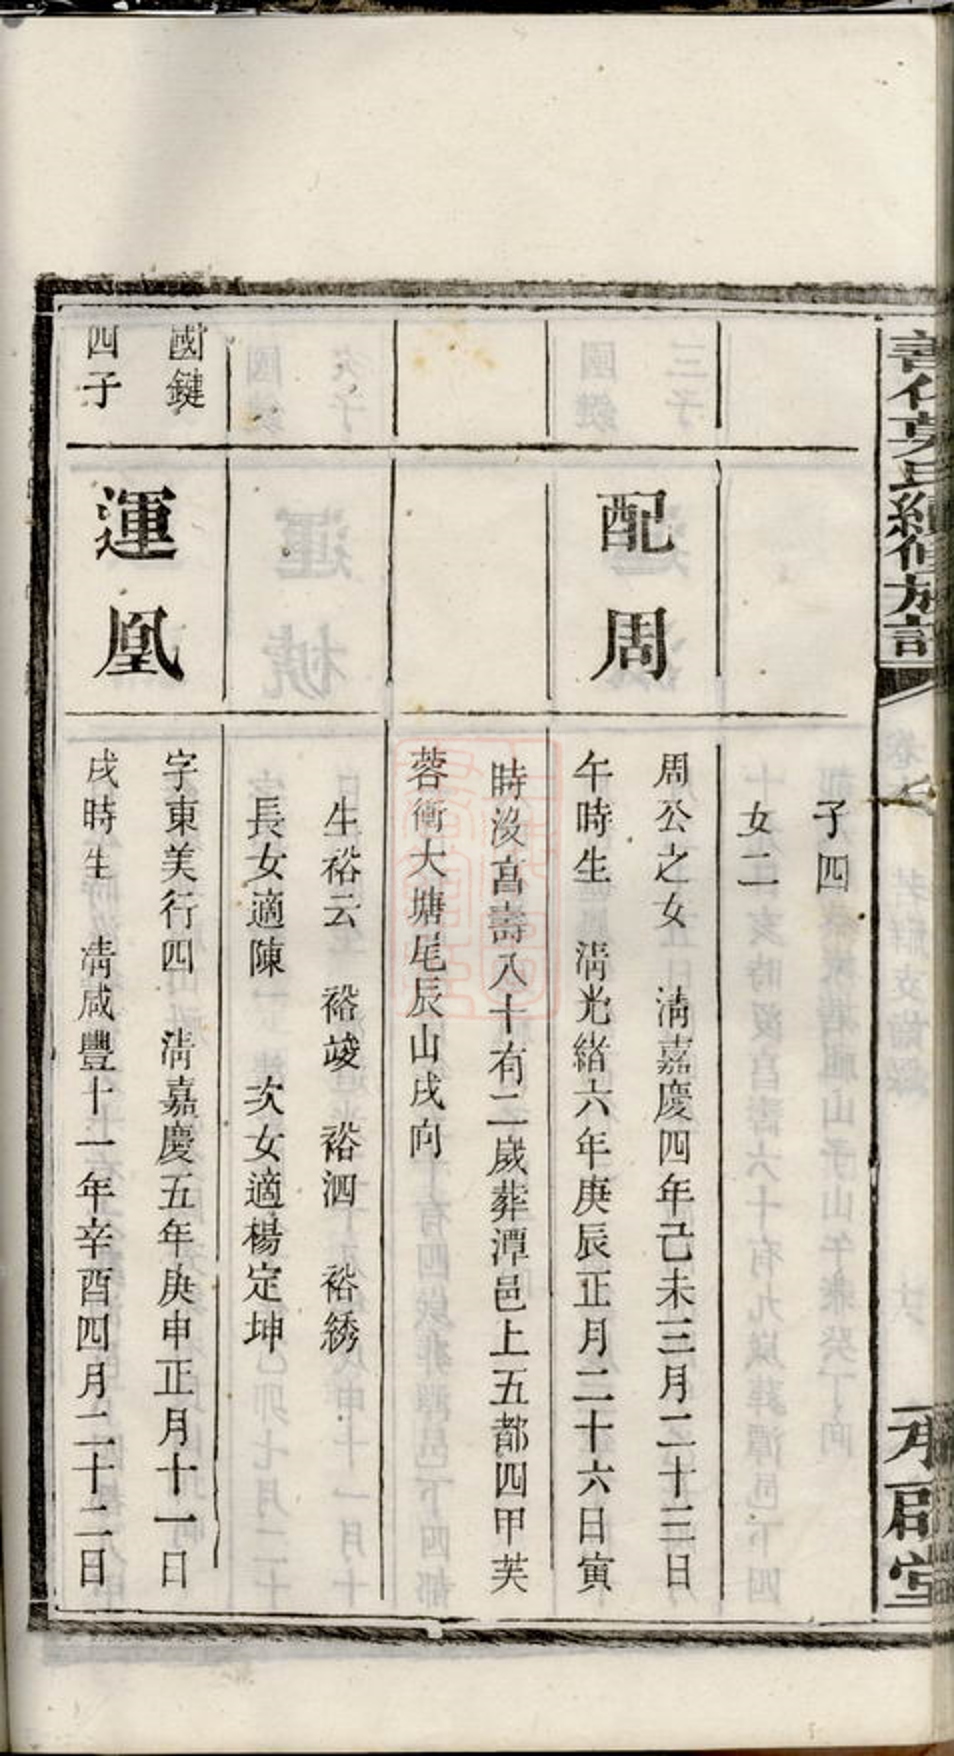 子四
女二
配周
周公之女 清嘉慶四年己未三月二十三日
午時生 清光緒六年庚辰正月二十六日寅
時沒亯壽八十有二歲葬潭邑上五都四甲芙
蓉衝大塘尾辰山戌向
生裕云 裕竣 裕泗 裕綉
長女適陳 次女適楊定坤
國鍵
四子
運凰
字東美行四 清嘉慶五年庚申正月十一日
戌時生 清咸豐十一年辛酉四月二十二日